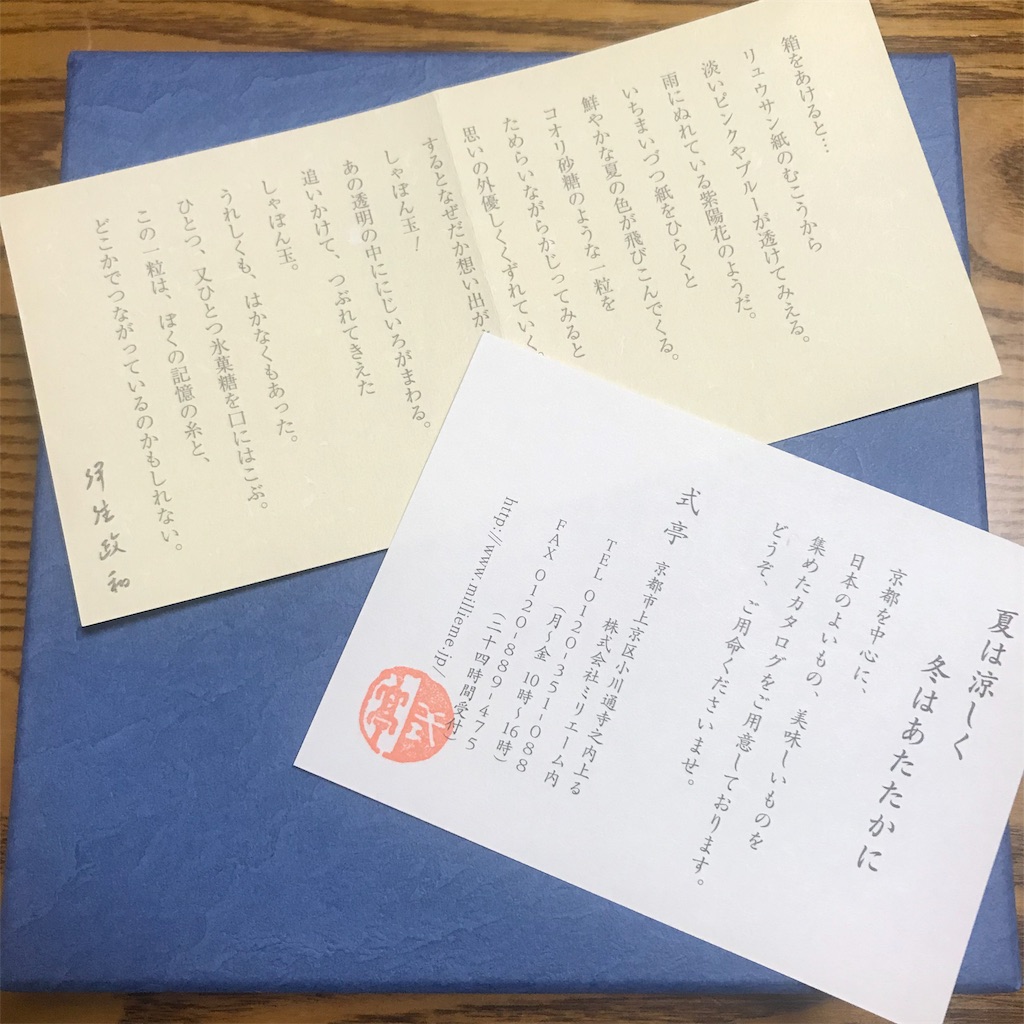 箱をあけると…
リュウサン紙のむこうから
淡いピンクやブルーが透けてみえる。
雨にぬれている紫陽花のようだ。
いちまいづつ紙をひらくと
鮮やかな夏の色が飛びこんでくる。
コオリ砂糖のような一粒を
ためらいながらかじってみると
思いの外優しくくずれていく。
するとなぜだか想い出が
しゃぼん玉!
あの透明の中ににじいろがまわる。
追いかけて、つぶれてきえた
しゃぼん玉。
うれしくも、はかなくもあった。
ひとつ、又ひとつ氷菓糖を口にはこぶ。
この一粒は、ぼくの記憶の糸と、
どこかでつながっているのかもしれない。
政和
夏は涼しく
冬はあたたかに
京都を中心に、
日本のよいもの、美味しいものを
集めたカタログをご用意しております。
どうぞ、ご用命くださいませ。
式亭
京都市上京区小川通寺之内上る
株式会社ミリエーム内
TEL 0120-351-088
(月~金 10時~16時)
FAX 0120-889-475
(二十四時間受付)
http://www.millieme.jp/